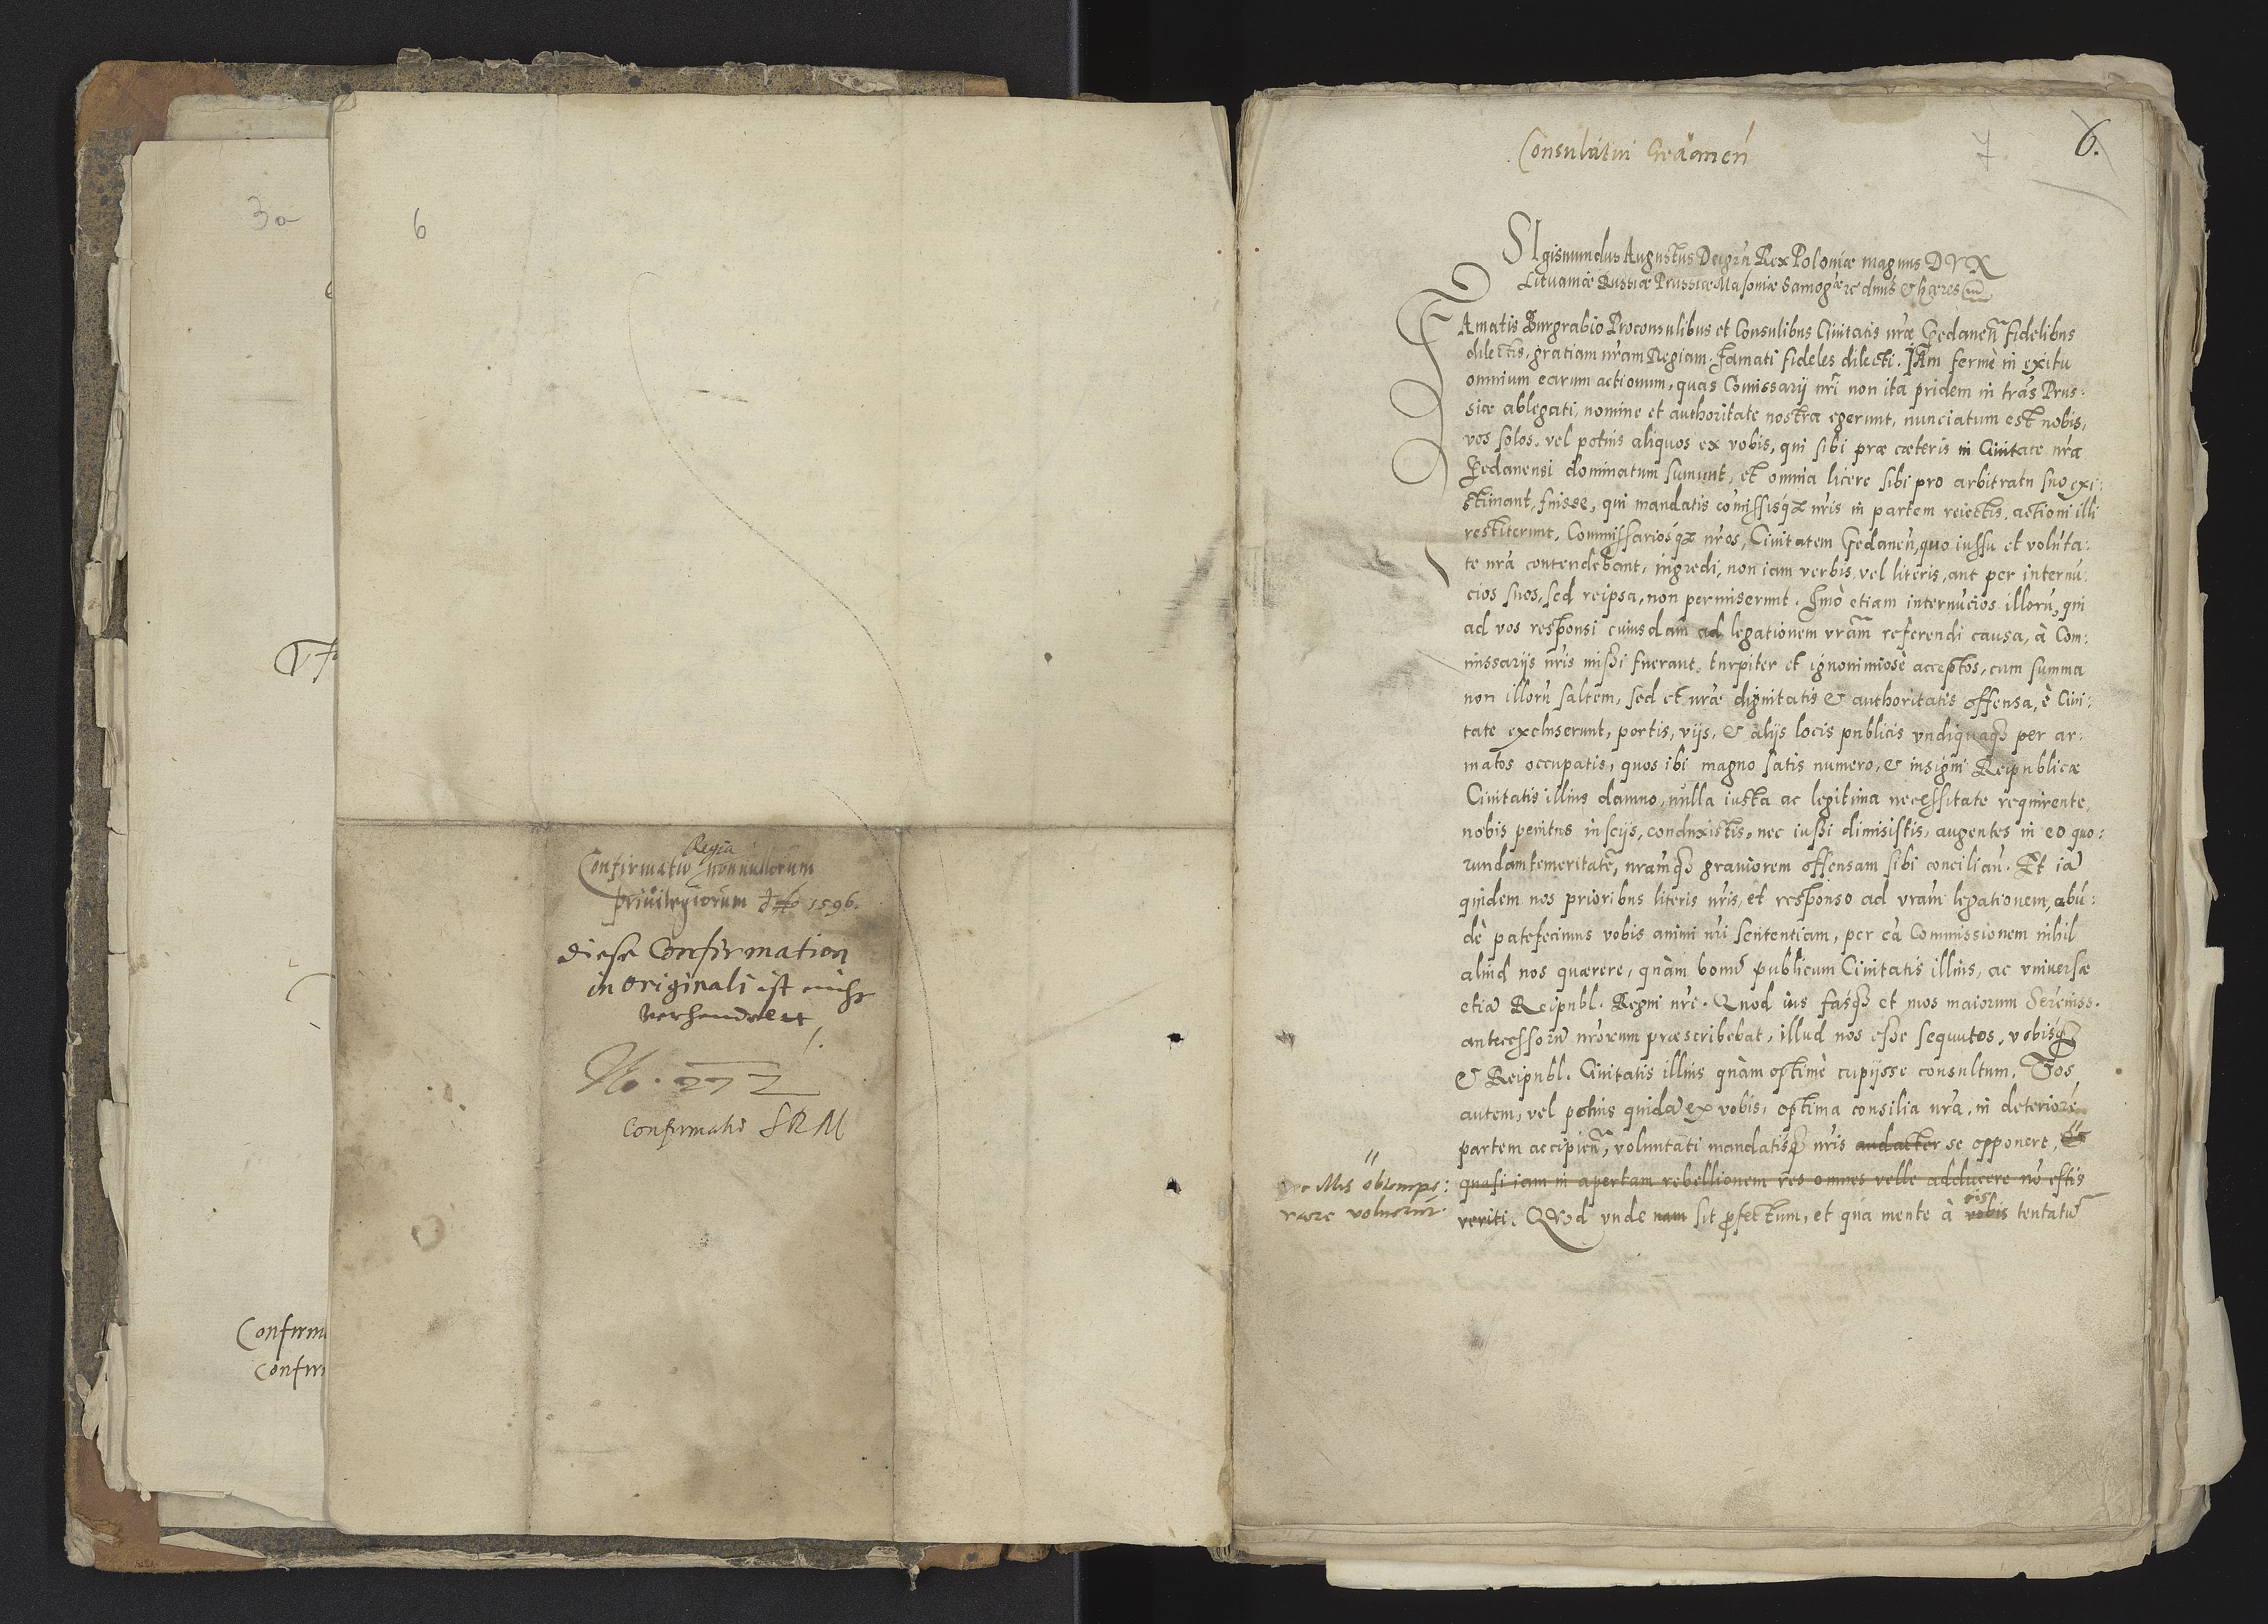 3a
6
Confirm
Confirm
Regia
Confirmatio nonnullorum
priuilegiorum 1596.
diese Confirmation
in originali ist nicht
verhandelt
No. 272
Confirmatio SRM
Consulatui Gedanen̄
7
6.
SIgismundus Augustus Dei gr̃a Rex Poloniæ magnus DVX
Lituaniæ Russiæ Prussiæ Masoniæ Samog ꝛc dnũs & hæres
FAmatis Burgrabio Proconsulibus et Consulibus Ciuitatis nr̃æ Gedanen̄ fidelibus
dilectis, gratiam nr̃am Regiam. Famati fideles dilecti. IAm fermè in exitu
omnium earum actionum, quas Com̃issarij nr̃i non ita pridem in tr̃as Prus:
siæ ablegati, nomine et authoritate nostra egerunt, nunciatum est nobis,
vos solos, vel potius aliquos ex vobis, qui sibi præ cæteris in Ciuitate nr̃a
Gedanensi dominatum sumunt, et omnia licere sibi pro arbitratu suo exi:
stimant, fuisse, qui mandatis com̃issisq́ꝫ nr̃is in partem reiectis, actioni illi
restiterunt, Commissariosq́ꝫ nr̃os, Ciuitatem Gedanen̄, quo iussu et volũta:
te nr̃a contendebant, ingredi, non iam verbis, vel literis, aut per internũ:
cios suos, sed reipsa, non permiserunt. Imò etiam internũcios illorũ, qui
ad vos responsi cuiusdam ad legationem vr̃am referendi causa, à Com:
missarijs nr̃is missi fuerant, turpiter et ignominiosè acceptos, cum summa
non illorũ saltem, sed et nr̃æ dignitatis & authoritatis offensa, è Ciui:
tate excluserunt, portis, vijs, & alijs locis publicis vndiquaqꝫ per ar:
matos occupatis, quos ibi magno satis numero, & insigni Reipublicæ
Ciuitatis illius damno, nulla iusta ac legitima necessitate requirente,
nobis penitus inscijs, conduxistis, nec iussi dimisistis, augentes in eo quo:
rundam temeritatẽ, nr̃amqꝫ grauiorem offensam sibi concilian̄. Et iã
quidem nos prioribus literis nr̃is, et responso ad vr̃am legationem, abũ:
dè patefecimus vobis animi nr̃i sententiam, per eã Commissionem nihil
aliud nos quærere, quàm bonũ publicum Ciuitatis illius, ac vniuersæ
etiã Reipubl. Regni nr̃i. Quod ius fasqꝫ et mos maiorum Sereniss.
antecessorũ nr̃orum præscribebat, illud nos esse sequutos, vobisqꝫ
& Reipubl. Ciuitatis illius quàm optimè cupijsse consultum. Vos
autem, vel potius quidã ex vobis, optima consilia nr̃a, in deteriorẽ
partem accipien̄, voluntati mandatisqꝫ nr̃is audacter se opponere, &
nec illis obtempe:
rare voluerũt
quasi iam in apertam rebellionem res omnes velle adducere nõ estis
veriti. QVod vnde nam sit ꝓfectum, et qua mente à vobis tentatũ
eis